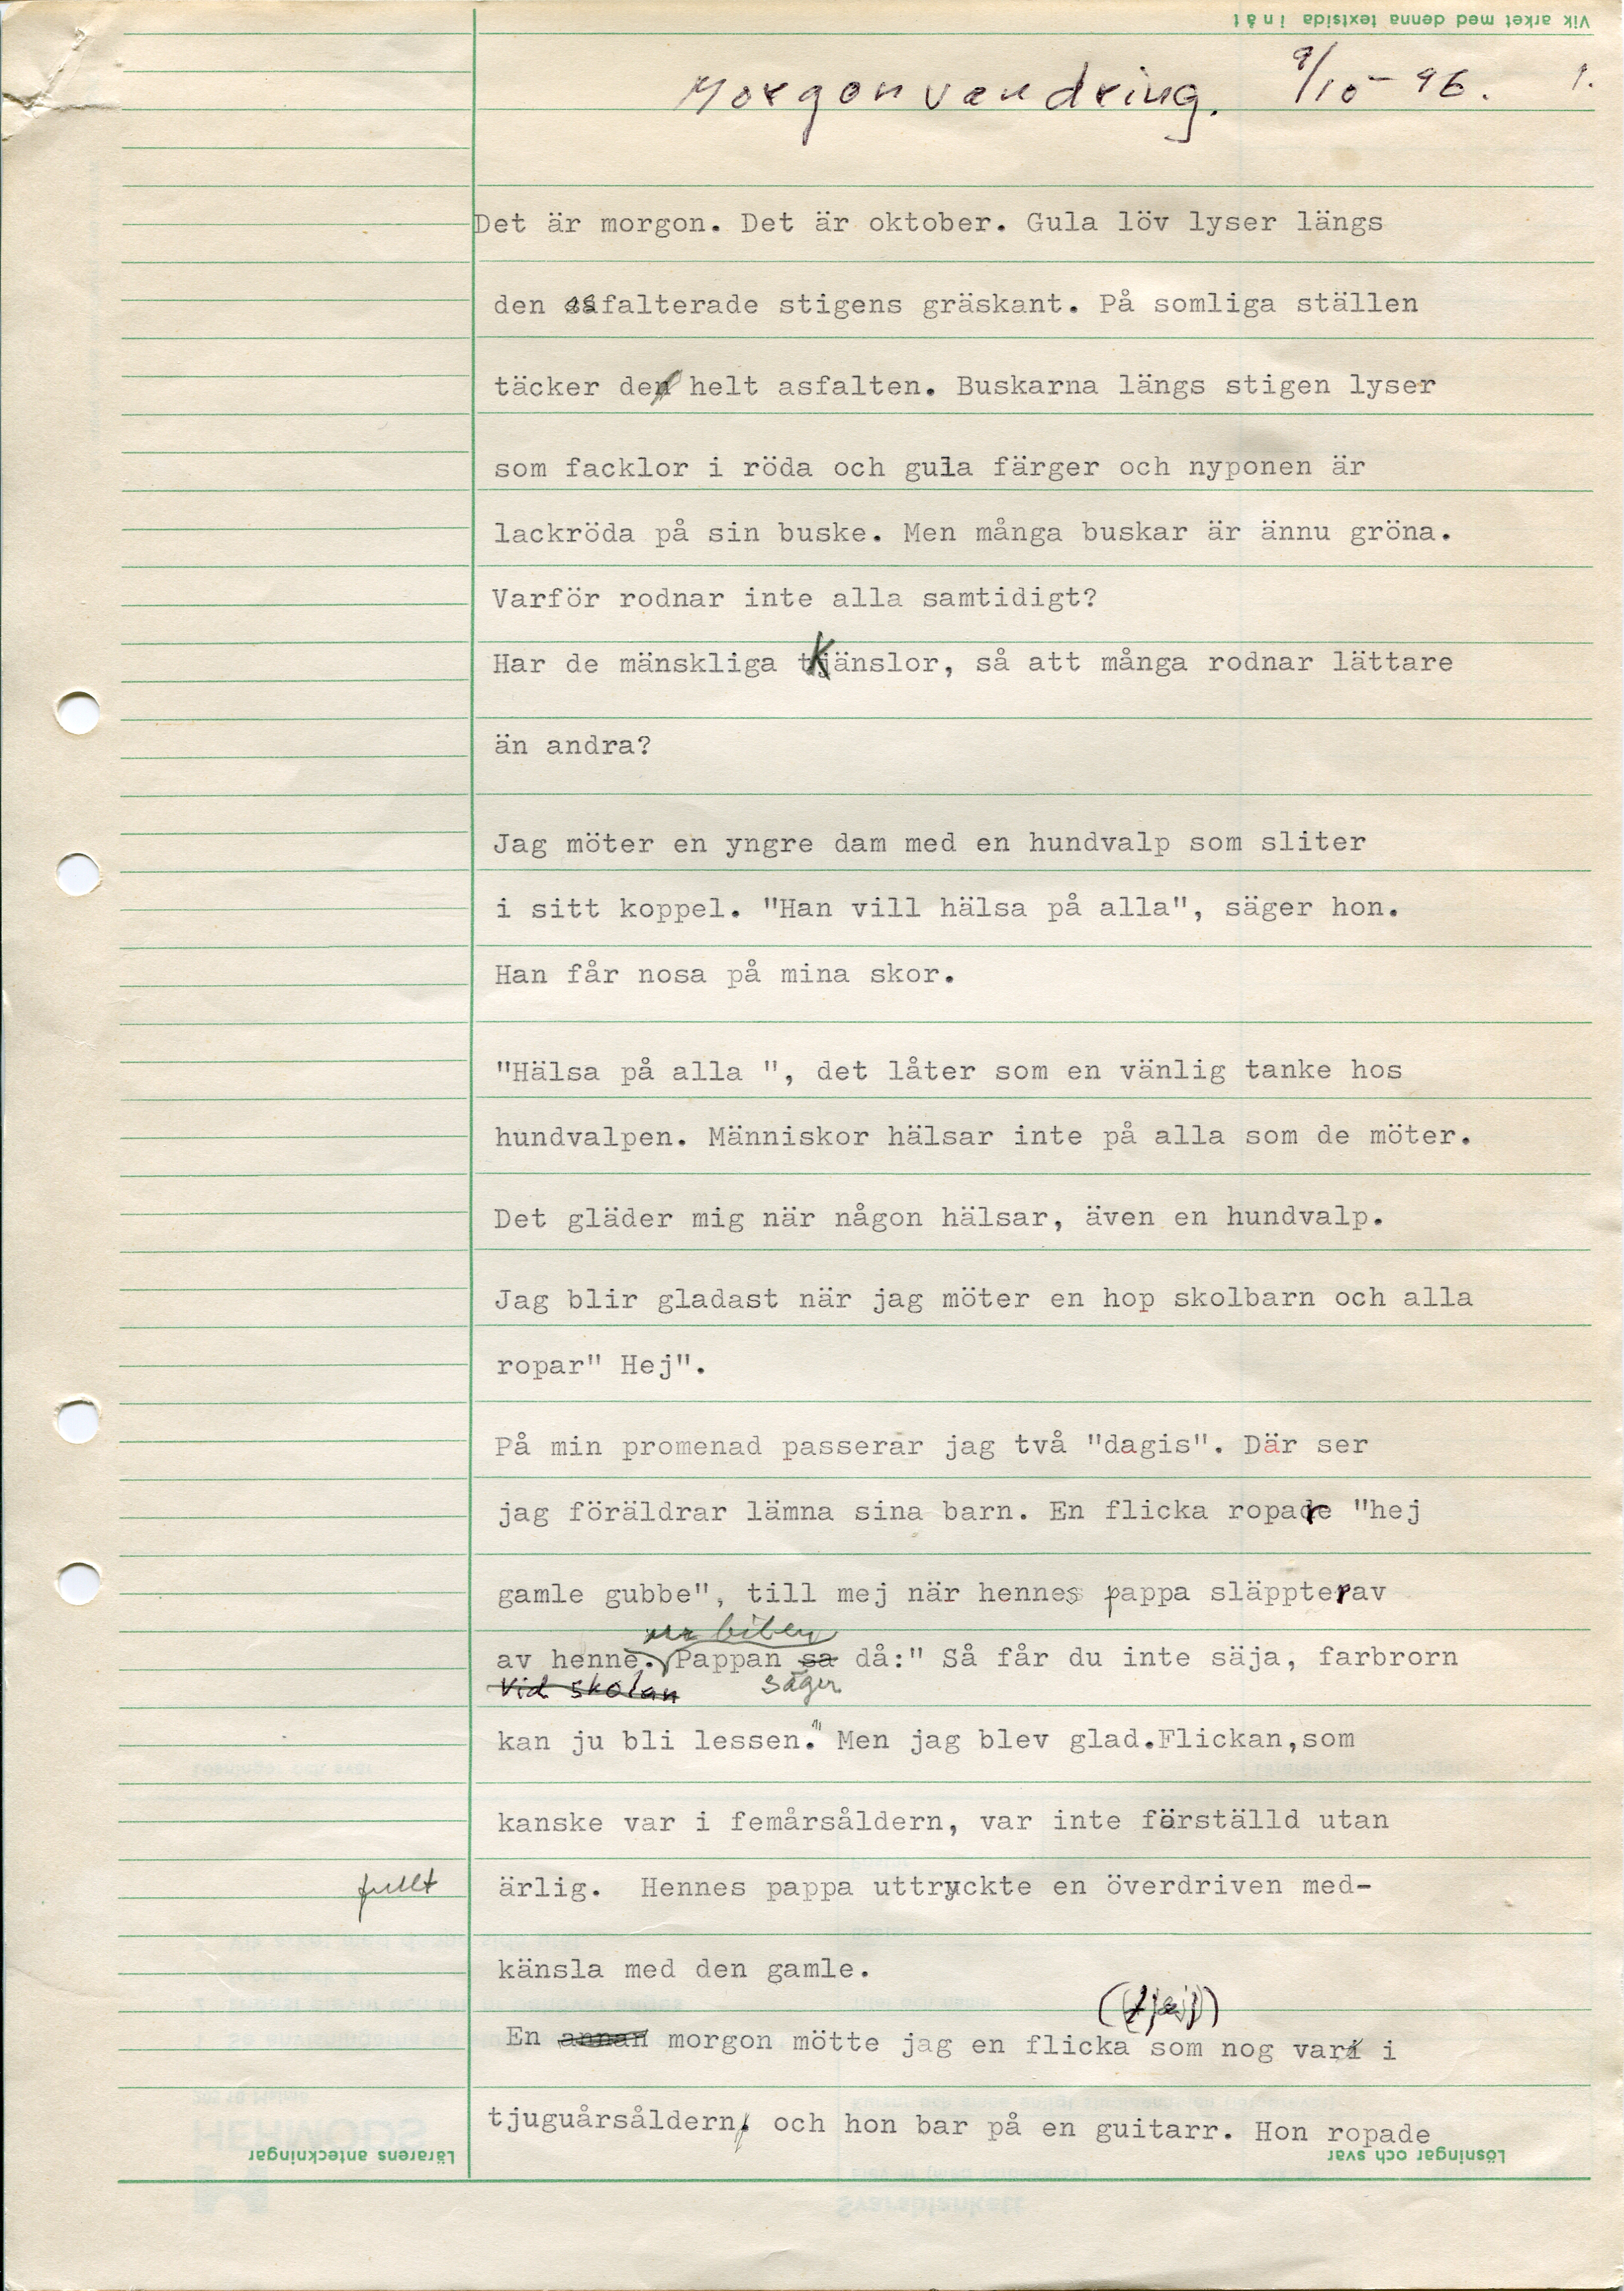 Vik arket med denna textsida inåt
Morgonvandring. 9/10-96. 1.
Det är morgon. Det är oktober. Gula löv lyser längs
den asfalterade stigens gräskant. På somliga ställen
täcker de helt asfalten. Buskarna längs stigen lyser
som facklor i röda och gula färger och nyponen är
lackröda på sin buske. Men många buskar är ännu gröna.
Varför rodnar inte alla samtidigt?
Har de mänskliga känslor, så att många rodnar lättare
än andra?
Jag möter en yngre dam med en hundvalp som sliter
i sitt koppel. "Han vill hälsa på alla", säger hon.
Han får nosa på mina skor.
"Hälsa på alla ", det låter som en vänlig tanke hos
hundvalpen. Människor hälsar inte på alla som de möter.
Det gläder mig när någon hälsar, även en hundvalp.
Jag blir gladast när jag möter en hop skolbarn och alla
ropar" Hej".
På min promenad passerar jag två "dagis". Där ser
jag föräldrar lämna sina barn. En flicka ropar "hej
gamle gubbe", till mej när hennes pappa släpper av
ur bilen
av henne. Pappan sa då:" Så får du inte säja, farbrorn
Vid skolan säger
kan ju bli lessen." Men jag blev glad.Flickan,som
kanske var i femårsåldern, var inte förställd utan
fullt
ärlig. Hennes pappa uttryckte en överdriven med-
känsla med den gamle.
En annan morgon mötte jag en flicka som nog var i
tjuguårsåldern, och hon bar på en guitarr. Hon ropade
Lärarens anteckningar
Lösningar och svar
HERMODS
Svarsblankett